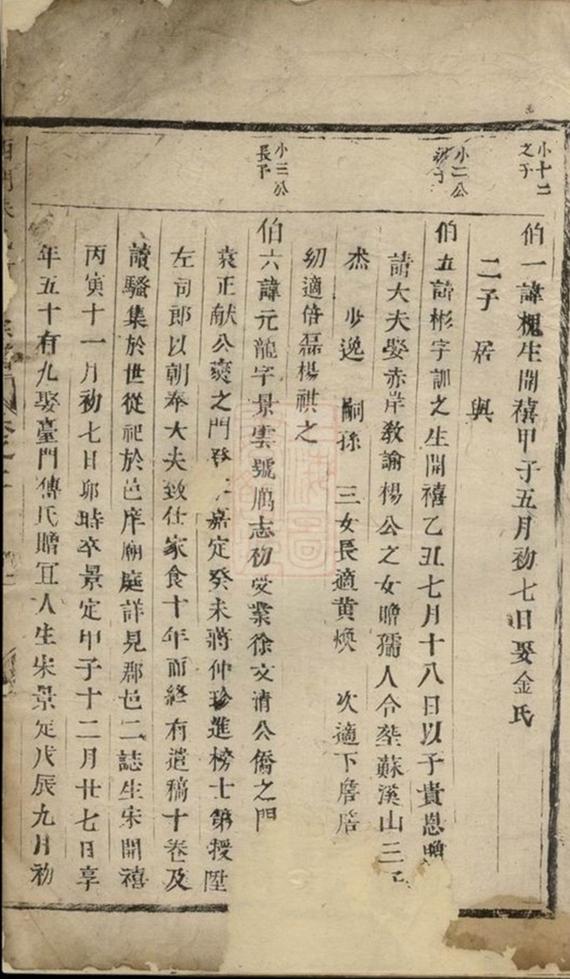 小十二
之子
伯一諱槐生開禧甲子五月初七日娶金氏
二子居與
小二公
伯五諱彬字訓之生開禧乙丑七月十八日以子貴恩贈
請大夫娶赤岸教諭楊公之女贈孺人合塟蘇溪山三子
杰 步逸 嗣孫 三女長適黄煥 次適下詹詹
㓜適倍磊楊祺之
小三公
長子
伯六諱元龍字景雲號鴈志初受業徐文清公僑之門
袁正献公爕之門 嘉定癸未蔣仲珍進榜士第授陞
左司郎以朝奉大夫致仕家食十年而終有遺稿十卷及
讀騷集於世從祀於邑庠廟庭詳見郡邑二誌生宋開禧
丙寅十一月初七日卯時卒景定甲子十二月廿七日享
年五十有九娶臺門傅氏贈宜人生宋景定戊辰九月初